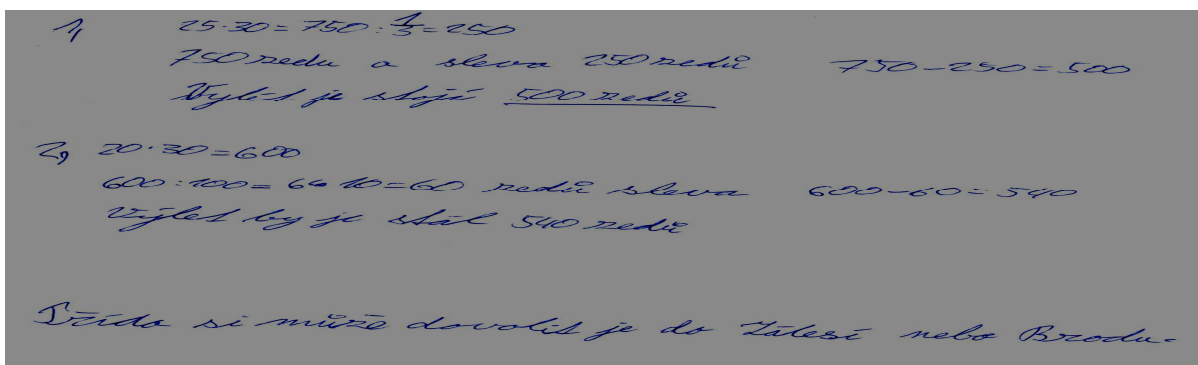 1, 25·30=750:1/3=250
750 zedů a sleva 250 zedů 750-250=500
Výlet je stojí 500 zedů
2, 20·30=600
600:100=6·10=60 zedů sleva 600-60=540
Výlet by je stál 540 zedů
Třída si může dovolit je do Zálesí nebo Brodu.